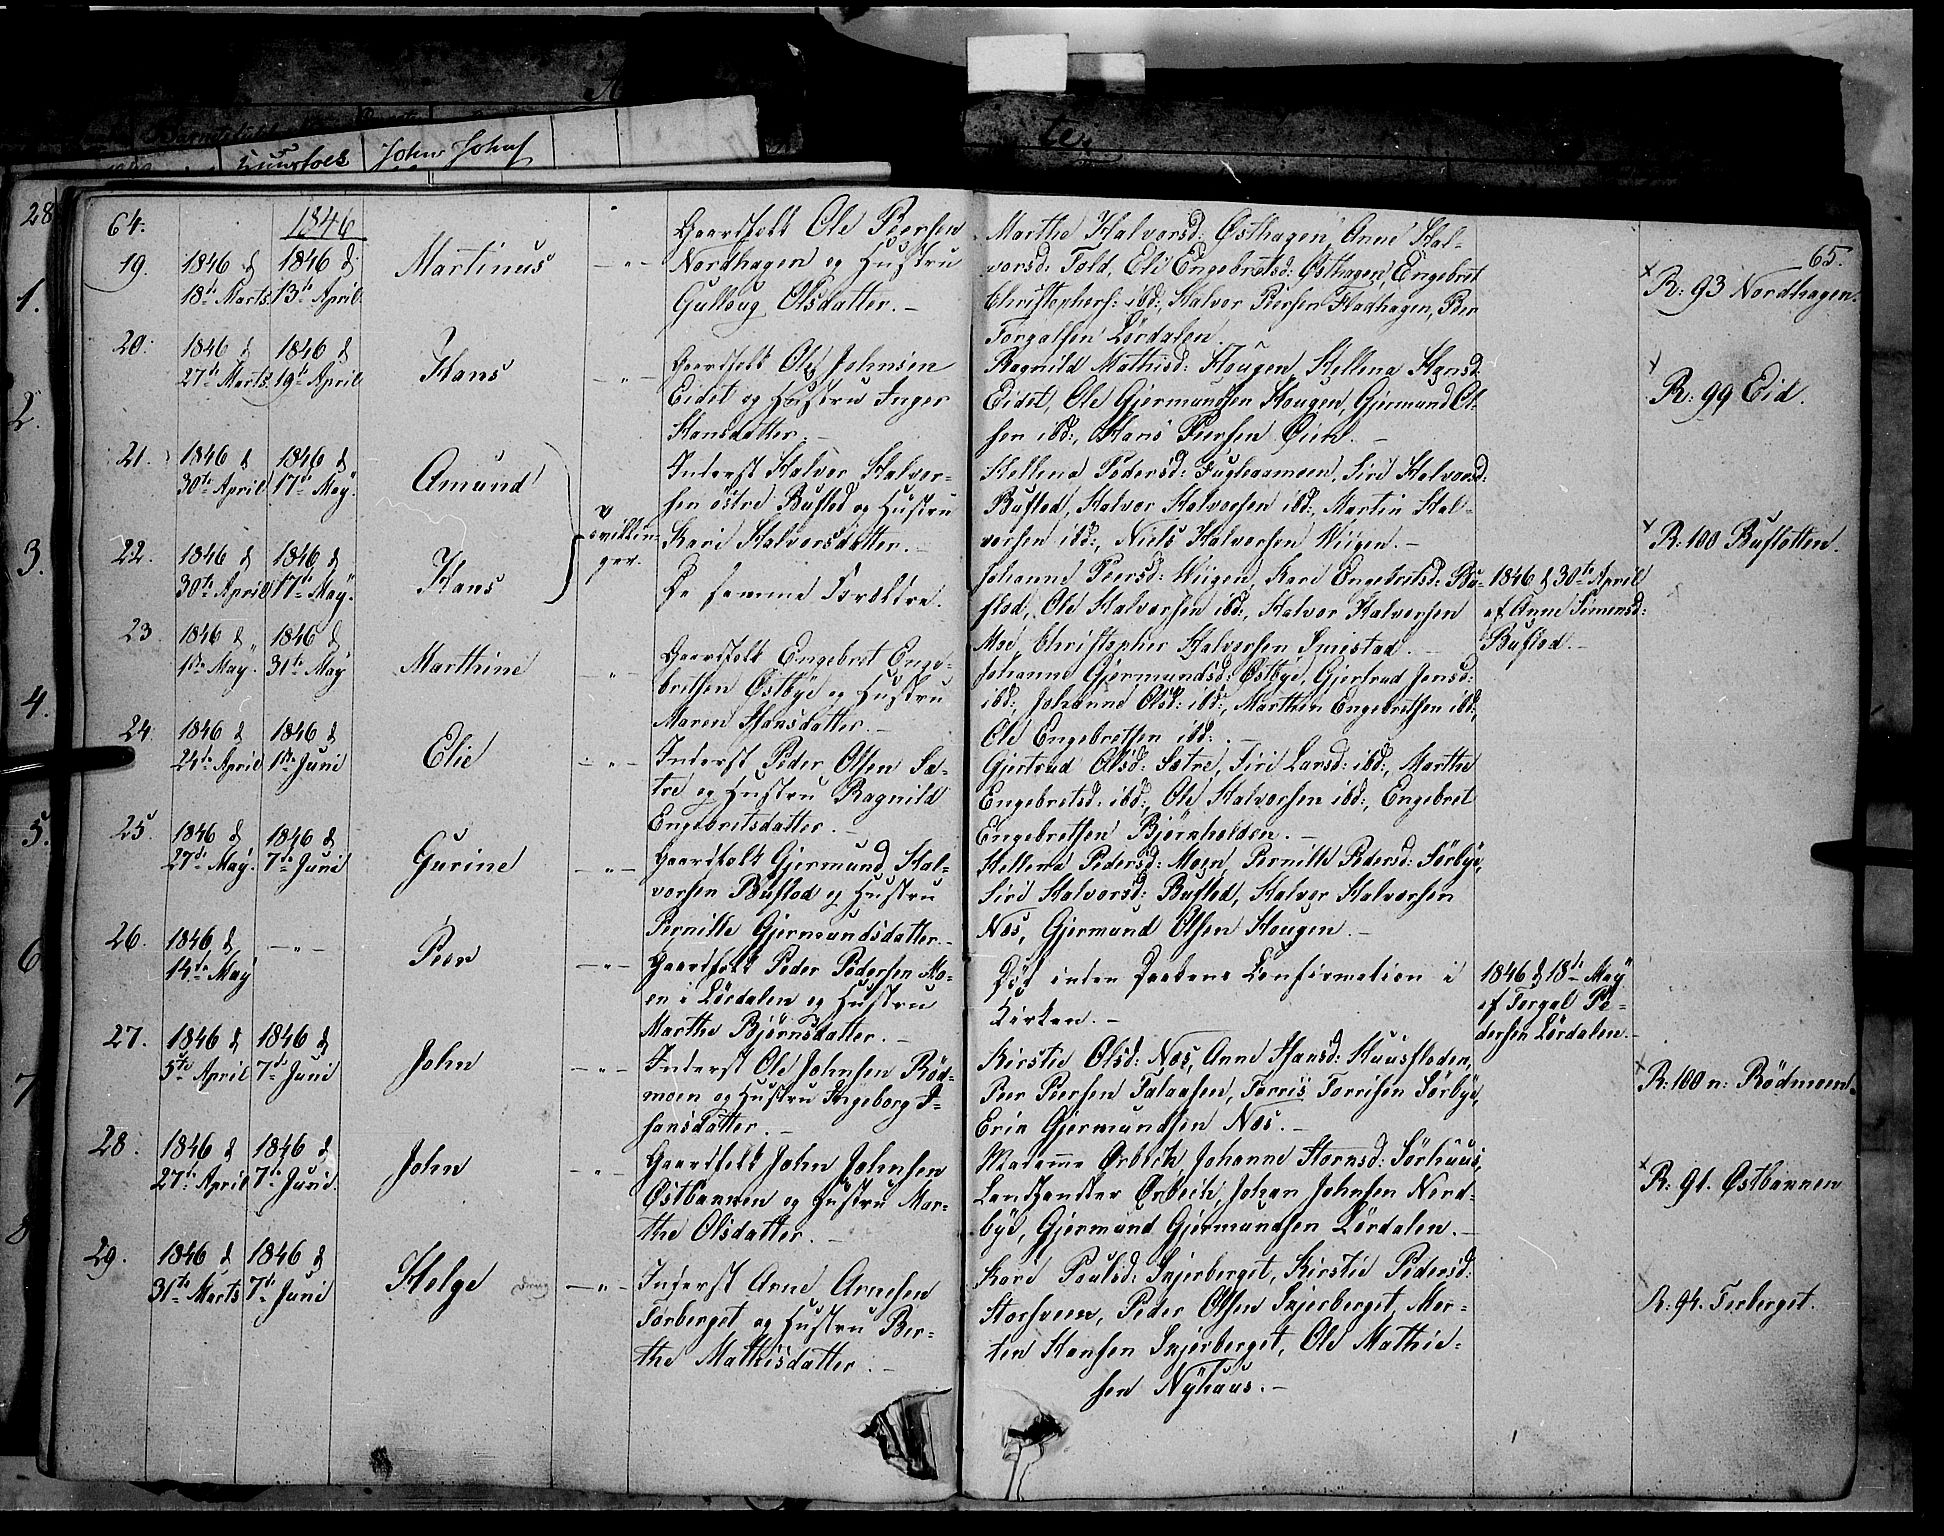 Barnefolk
Huusfolk
John Johns
te.
28
1.
2.
3.
4.
5.
6
7
8
64.
1846
19.
1846 d
18de Marts
1846 d
13de April
Martinus
— " —
Gaardfolk Ole Peersen
Nordhagen og Hustru
Gulloug Olsdatter. —
Marthe Halvorsd: Østhagen, Anne Hal-
vorsd: Told, Eli Engebretsd: Østhagen, Engebret
Christophers: ibd:, Halvor Peersen Fladhagen, Peer
Torgalsen Lördalen.
65.
x
R: 93 Nordhagen.
20.
1846 d
27de Marts
1846 d
19de April
Hans
— " —
Gaardfolk Ole Johnsen
Eidet og Hustru Inger
Hansdatter. —
Ragnild Mathisd: Hougen, Hellena Hansd:
Eidet, Ole Gjermundsen Hougen, Gjermund Ol-
sen ibd:, Hans Peersen Øien. —
x
R: 99 Eid.
21.
1846 d
30te April
1846 d
17de May.
Amund
Tvillin-
ger.
Inderst Halvor Halvor-
sen östre Bufled og Hustru
Kari Halvorsdatter. —
Hellena Pedersd: Fuglaamoen, Siri Halvorsd:
Bufled, Halvor Halvorsen ibd:, Martin Hal-
vorsen ibd:, Niels Halvorsen Wiigen. —
x
R: 100 Bufletten.
22.
1846 d
30te April
1846 d
17de May.
Hans
De samme Forældre.
Johanne Peersd: Wiigen, Kari Engebretsd: Bu-
fled, Ole Halvorsen ibd:, Halvor Halvorsen
Moe, Christopher Halvorsen Smestad. —
1846 d 30te April
af Anne Simensd:
Bufled. —
23.
1846 d
1ste May.
1846 d
31te May
Marthine
— " —
Gaardfolk Engebret Enge-
bretsen Östbye og Hustru
Maren Hansdatter. —
Johanne Gjermundsd: Östbye, Gjertrud Jensd:
ibd:, Johanne Olsd: ibd:, Marthin Engebretsen ibd:,
Ole Engebretsen ibd: . —
24.
1846 d
24de April
1846 d
1ste Juni
Elie
— " —
Inderst Peder Olsen Sæ-
tre og Hustru Ragnild
Engebretsdatter. —
Gjertrud Olsd: Sætre, Siri Larsd: ibd:, Marthe
Engebretsd: ibd:, Ole Halvorsen ibd:, Engebret
Engebretsen Björnholden. —
25.
1846 d
27de May.
1846 d
7de Juni
Gurine
— " —
Gaardfolk Gjermund Hal-
vorsen Bufled og Hustru
Pernille Gjermundsdatter. —
Hellena Pedersd: Moen, Pernille Pedersd: Sörbye,
Siri Halvorsd: Bufled, Halvor Halvorsen
Næs, Gjermund Olsen Hougen. —
26.
1846 d
14de May
— " —
Peer
— " —
Gaardfolk Peder Pedersen Mo-
en i Lördalen og Hustru
Marthe Björnsdatter. —
Död inden Daabens Confirmation i
Kirken. —
1846 d 18de May
af Torgal Pe-
dersen Lördalen. —
27.
1846 d
5te April
1846 d
7de Juni
John
— " —
Inderst Ole Johnsen Röd-
moen og Hustru Ingeborg J-
hansdatter. —
Kirstie Olsd: Næs, Anne Hansd: Huusfloden,
Peer Peersen Talaasen, Torris Torrisen Sörbye,
Erik Gjermundsen Næs. —
x
R: 100 n: Rödmoen.
28.
1846 d
27de April
1846 d
7de Juni
John
— " —
Gaardfolk John Johnsen
Östbannen og Hustru Mar-
the Olsdatter. —
Madame Ørbeck, Johanne Hornsd: Sörhuus,
Landhandler Ørbeck, Johan Johnsen Nord-
bye, Gjermund Gjermundsen Lördalen. —
x
R: 91. Østbannen
29.
1846 d
31te Marts
1846 d
7de Juni
Helge
dreng
— " —
Inderst Arne Arnesen
Sörberget og Hustru Ber-
the Mathisdatter. —
Kari Poulsd: Injerberget, Kirstie Pedersd:
Storsveen, Peder Olsen Injerberget, Mor-
ten Hansen Injerberget, Ole Mathie-
sen Nyhuus. —
x
R. 94. Ferberget.